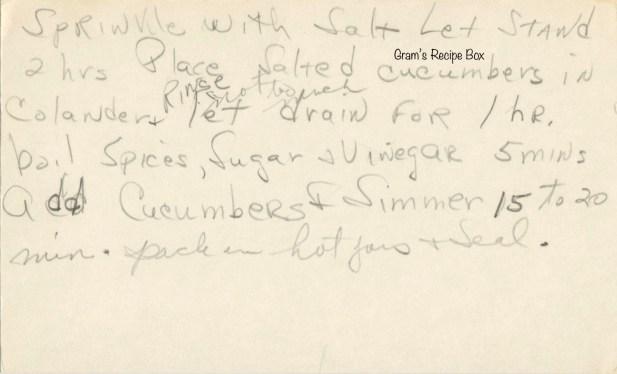 Sprinkle with Salt Let Stand
Gram's Recipe Box
2 hrs Place Salted cucumbers in
Rinse not too much
Colander & let drain for 1 hr.
boil Spices, Sugar & Vinegar 5 mins
add Cucumbers & Simmer 15 to 20
min. pack in hot jars & Seal.